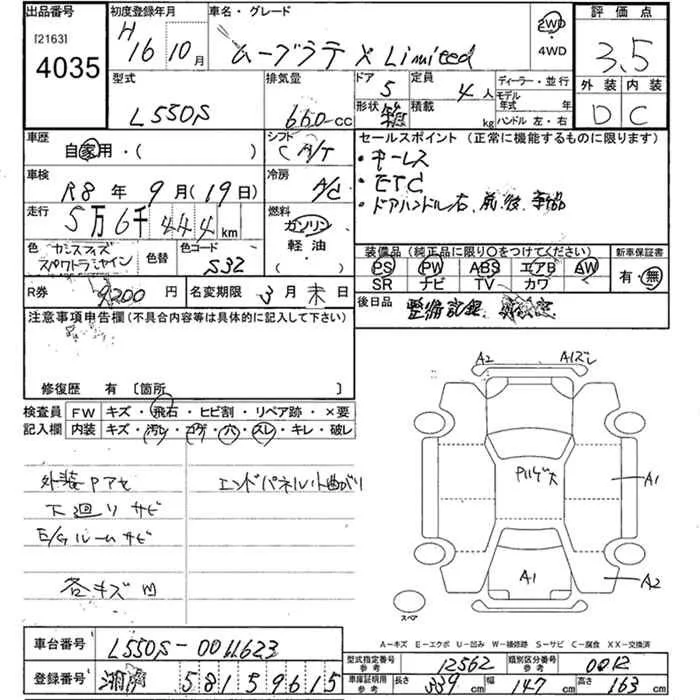 出品番号 初度登録年月 車名・グレード 評価点
[2163] 4035 H16 10月 ムーブラテ X Limited 2WD・4WD 3.5
型式 排気量 ドア 定員 ディーラー・並行 外装 内装
L550S 660cc 5 4人 モデル年式 年 D C
形状 積載 kg ハンドル 左・右
車歴 シフト セールスポイント (正常に機能するものに限ります)
自家用・( ) C A/T ・キーレス
車検 冷房 ・ETC
R8年9月(19日) A/C ・ドアハンドル右、前、後、
走行 燃料
5万6千444km ガソリン 軽油 ( )
色 色替 色コード S32 装備品 (純正品に限り○をつけてください) 新車保証書
PS PW ABS エアB AW 有・無
SR ナビ TV カワ
R券 9200円 名変期限 3月末日 後日品 整備記録
注意事項申告欄(不具合内容等は具体的に記入して下さい)
修復歴 有 〔箇所 〕
検査員 FW キズ・飛石・ヒビ割・リペア跡・×要
記入欄 内装 キズ・汚レ・コゲ・穴・スレ・キレ・破レ
外装Pアセ エンドパネル小曲がり
下廻りサビ
E/Gルームサビ
各キズ凹
A2 A1ズレ
A1
A1 A2
スペア
A-キズ E-エクボ U-凹み W-補修跡 S-サビ C-腐食 XX-交換済
車台番号 L550S-0011623
登録番号 湘南 581 5 9615
型式指定番号 参考 12562 類別区分番号 参考 0012
車庫証明用 参考 長さ 339cm 幅 147cm 高さ 163cm